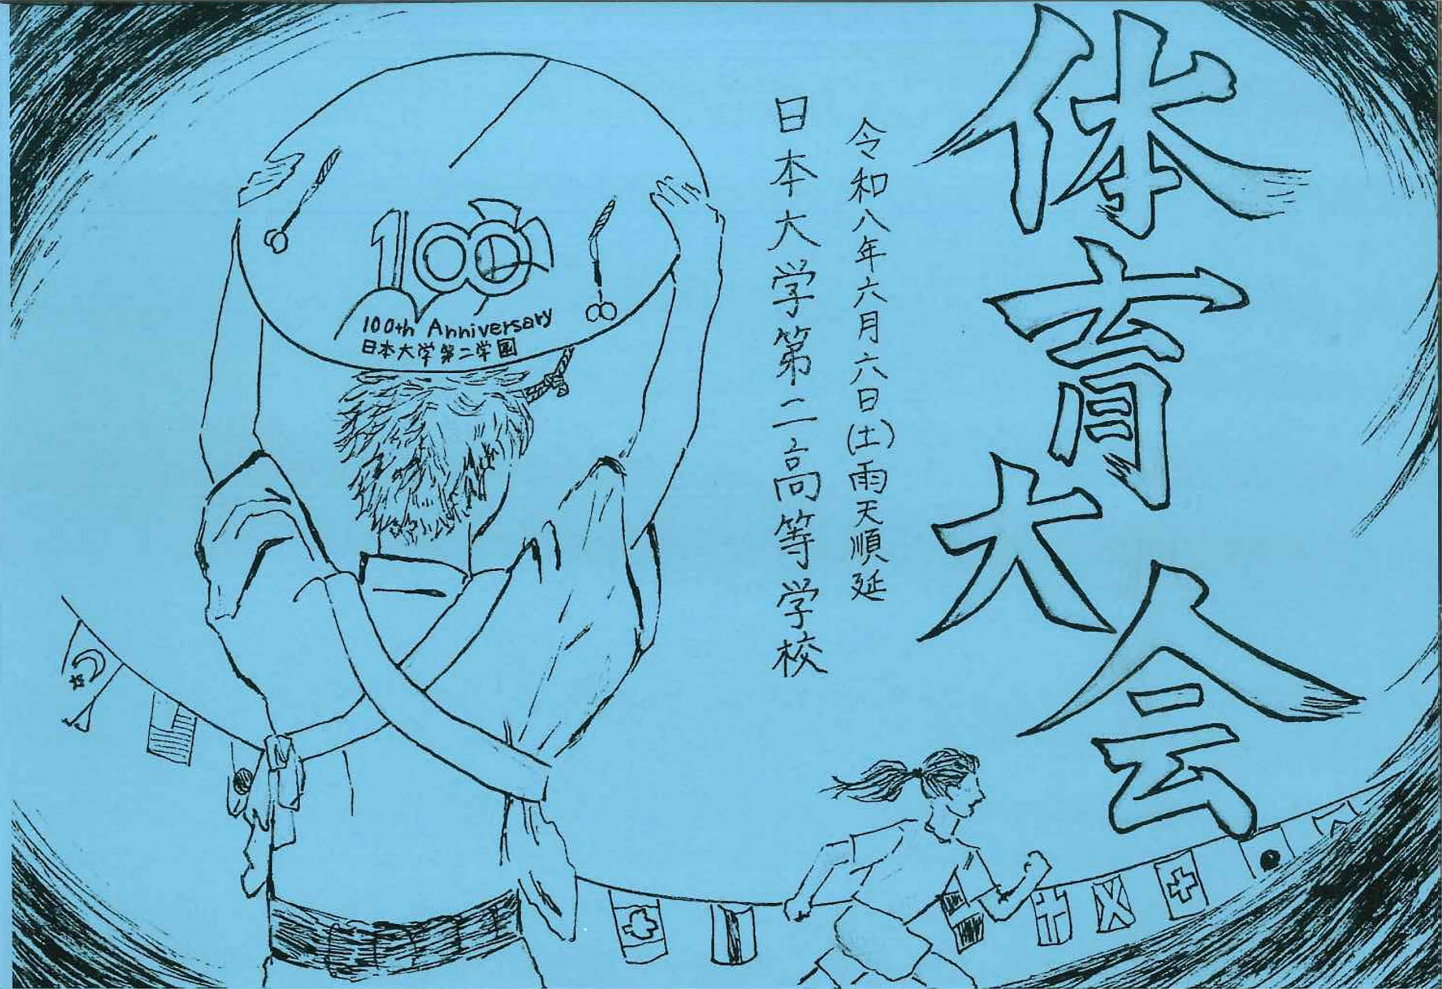 体育大会
令和八年六月六日(土)雨天順延
日本大学第二高等学校
100
100th Anniversary
日本大学第二学園